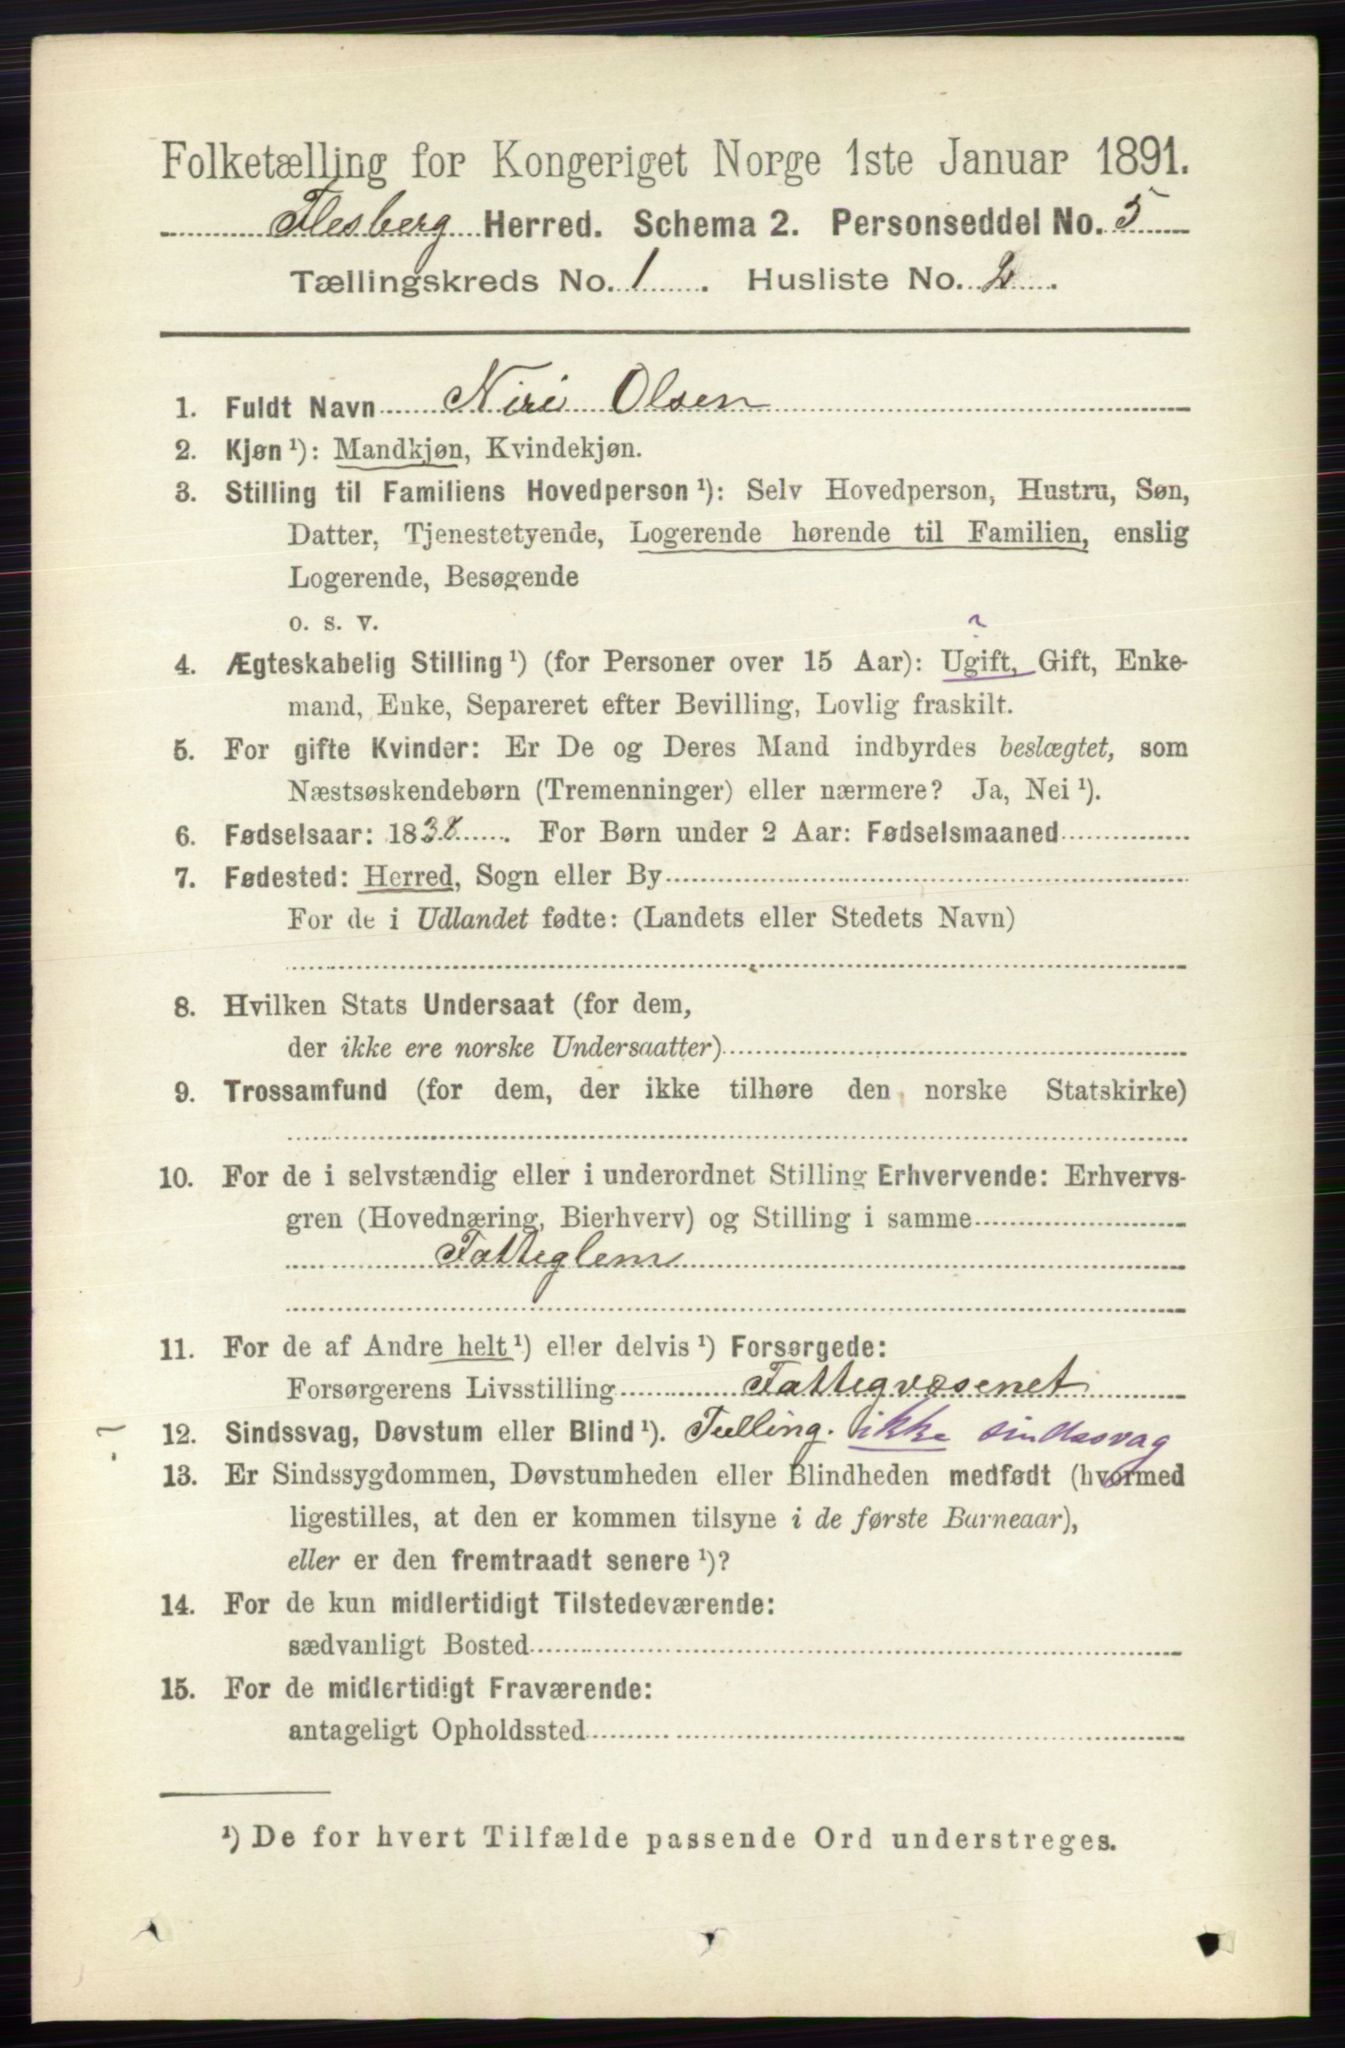 Folketælling for Kongeriget Norge 1ste Januar 1891.
Flesberg Herred. Schema 2. Personseddel No. 5
Tællingskreds No. 1. Husliste No. 2.
1. Fuldt Navn Niri Olsen
2. Kjøn ¹): Mandkjøn, Kvindekjøn.
3. Stilling til Familiens Hovedperson ¹): Selv Hovedperson, Hustru, Søn,
Datter, Tjenestetyende, Logerende hørende til Familien, enslig
Logerende, Besøgende
o. s. v.
?
4. Ægteskabelig Stilling ¹) (for Personer over 15 Aar): Ugift, Gift, Enke-
mand, Enke, Separeret efter Bevilling, Lovlig fraskilt.
5. For gifte Kvinder: Er De og Deres Mand indbyrdes beslægtet, som
Næstsøskendebørn (Tremenninger) eller nærmere? Ja, Nei ¹).
6. Fødselsaar: 1838. For Børn under 2 Aar: Fødselsmaaned
7. Fødested: Herred, Sogn eller By
For de i Udlandet fødte: (Landets eller Stedets Navn)
8. Hvilken Stats Undersaat (for dem,
der ikke ere norske Undersaatter)
9. Trossamfund (for dem, der ikke tilhøre den norske Statskirke)
10. For de i selvstændig eller i underordnet Stilling Erhvervende: Erhvervs-
gren (Hovednæring, Bierhverv) og Stilling i samme
Fatteglem
11. For de af Andre helt ¹) eller delvis ¹) Forsørgede:
Forsørgerens Livsstilling Fattegvæsenet
12. Sindssvag, Døvstum eller Blind ¹). Tulling. ikke sindssvag
13. Er Sindssygdommen, Døvstumheden eller Blindheden medfødt (hvormed
ligestilles, at den er kommen tilsyne i de første Barneaar),
eller er den fremtraadt senere ¹)?
14. For de kun midlertidigt Tilstedeværende:
sædvanligt Bosted
15. For de midlertidigt Fraværende:
antageligt Opholdssted
¹) De for hvert Tilfælde passende Ord understreges.